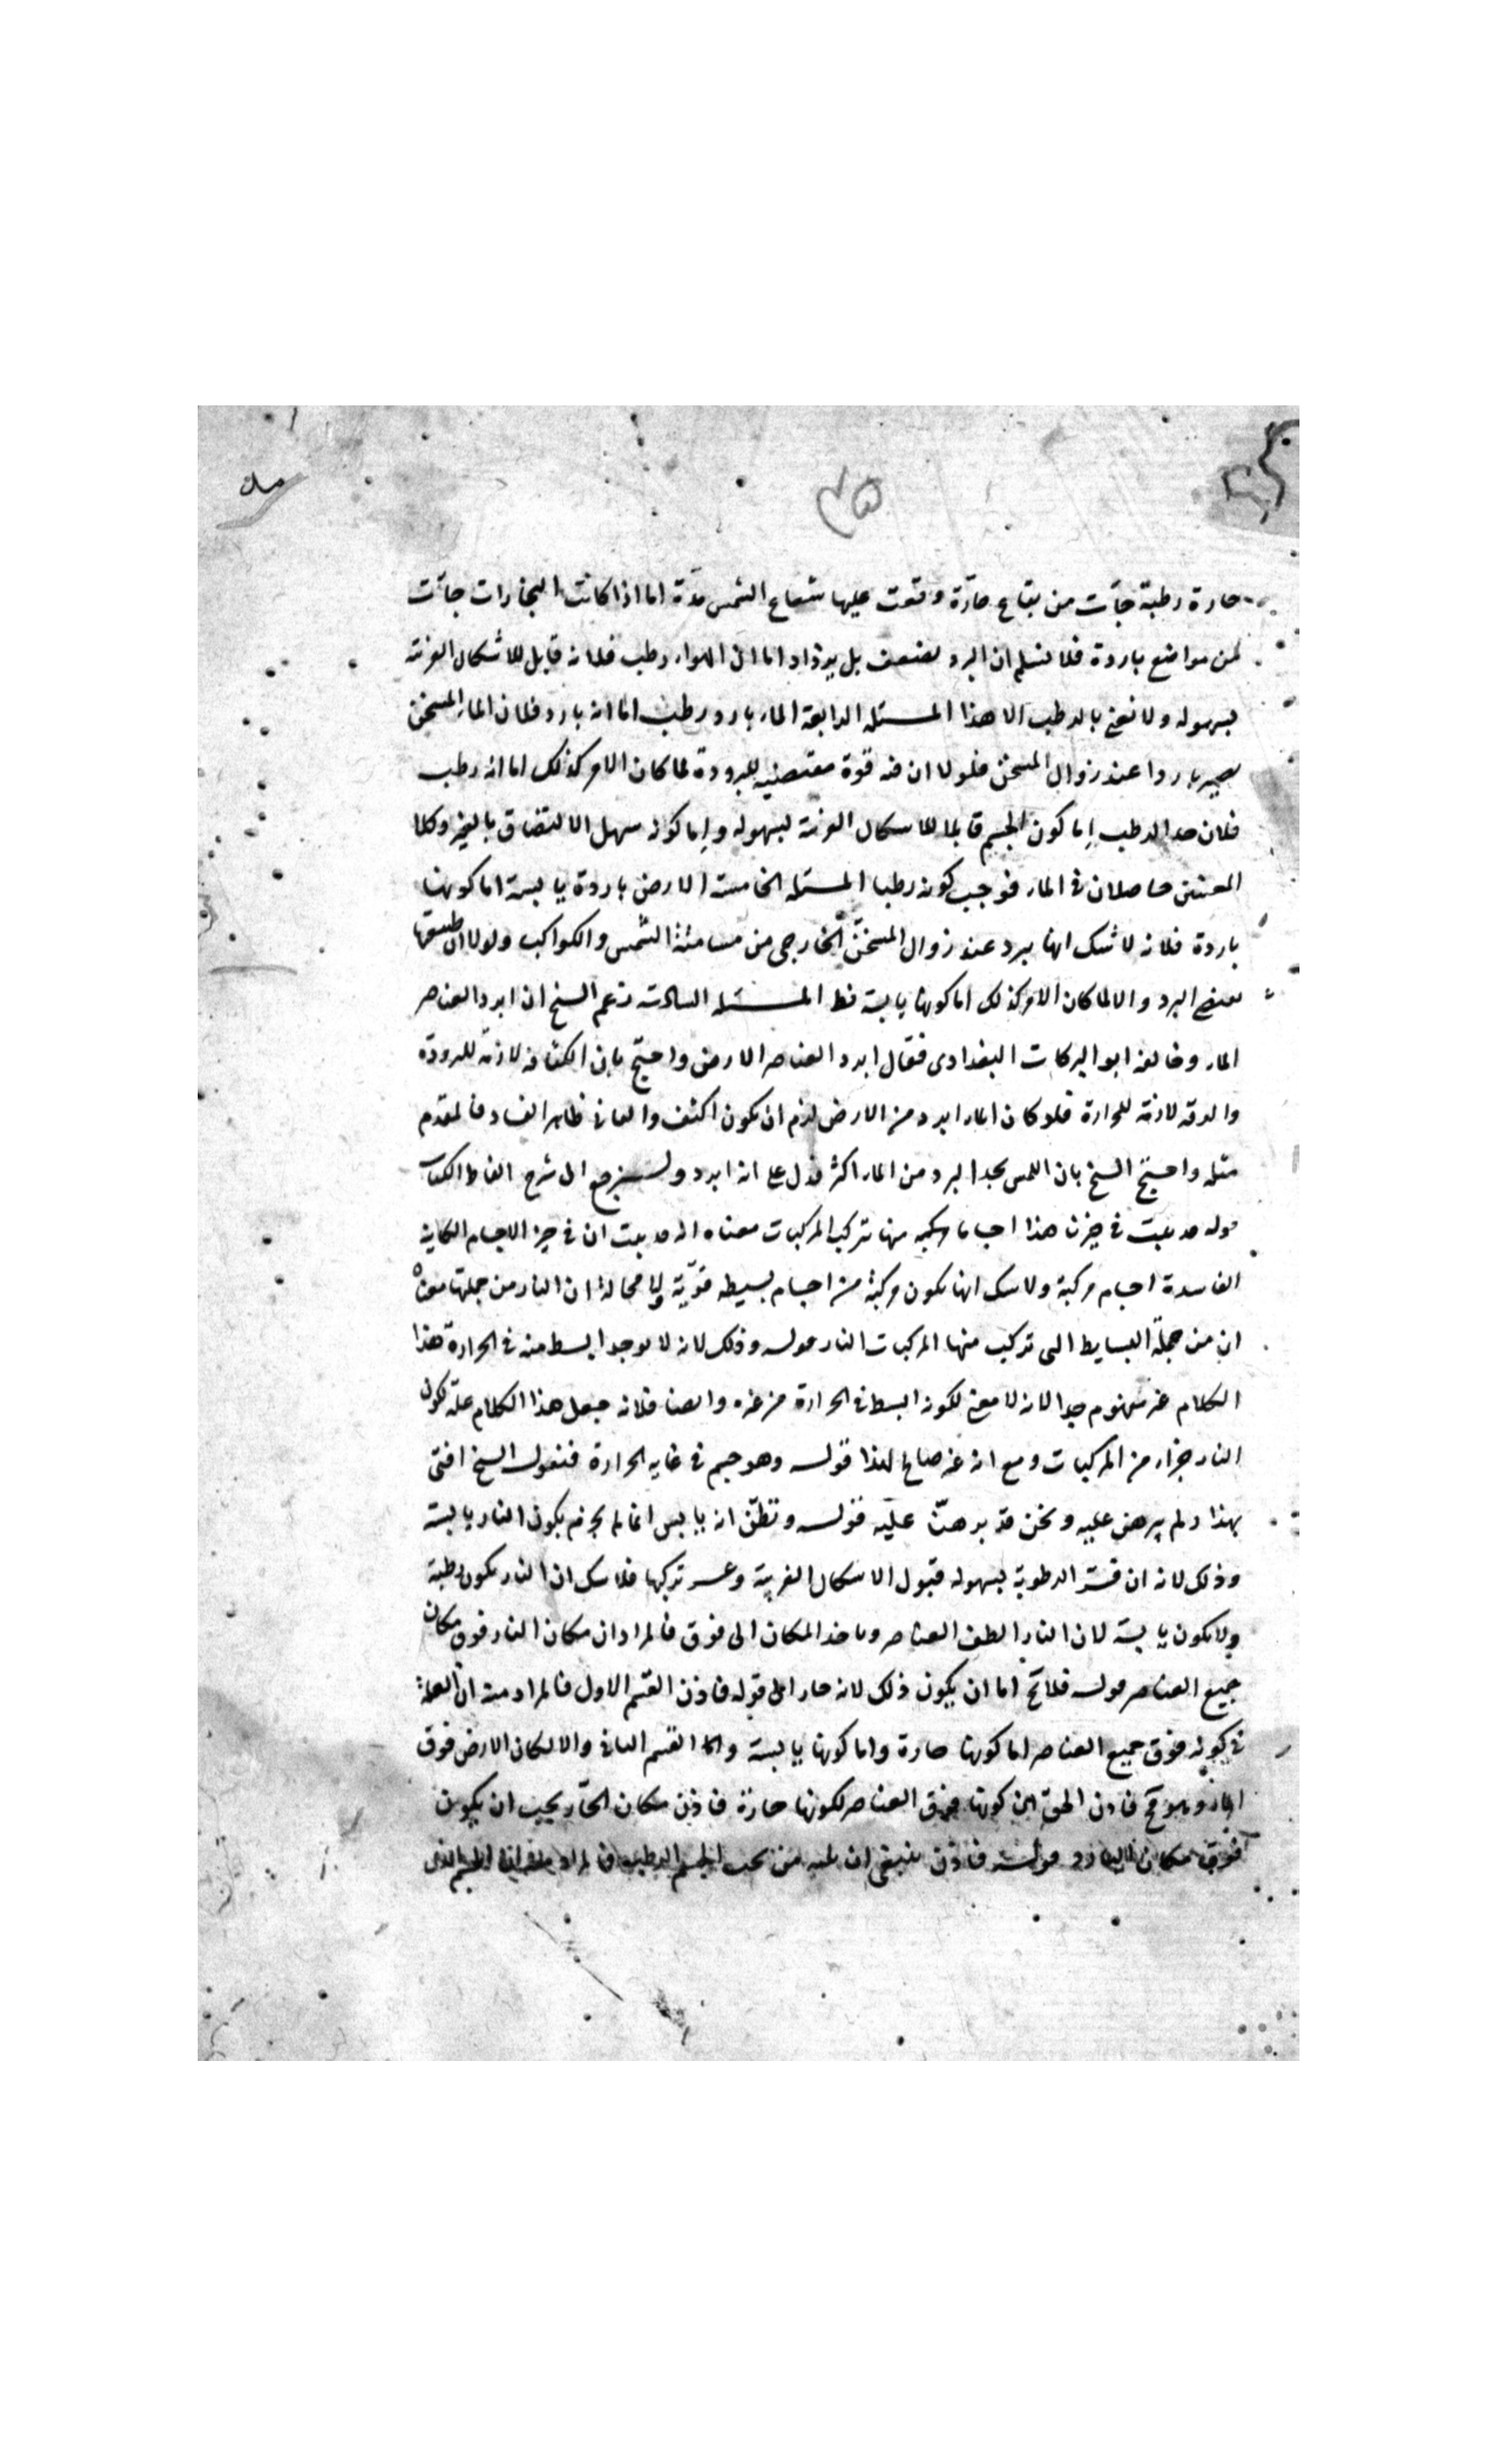 حارة رطبة جآت من بقاع حارّة وقعت عليها شعاع الشمس مدّة اما اذا كانت البخارات جآت
من مواضع باردة فلا نسلم ان البرد يضعف بل يزداد اما ان الهواء رطب فلانه قابل للاشكال الغريبة
بسهوله ولا نعنى بالرطب الا هذا المسئله الرابعة الماء بارد رطب اما انه بارد فلان الماء المسخن
يصير باردا عند زوال المسخن فلولا ان فيه قوة مقتضية للبرودة لما كان الامر كذلك اما انه رطب
فلان حد الرطب إما كون الجسم قابلا للاشكال الغريبة بسهوله وإما كونه سهل الالتصاق بالغير وكلا
المعنيين حاصلان فى الماء فوجب كونه رطبا المسئله الخامسة الارض باردة يابسة اما كونها
باردة فلانه لا شك انها يبرد عند زوال المسخّن الخارجى من مسامتة الشمس والكواكب ولولا ان طبيعتها
يقتضى البرد والا لما كان الامر كذلك اما كونها يابسة فظ المسئله السادسة زعم الشيخ ان ابرد العناصر
الماء وخالفه ابو البركات البغدادى فقال ابرد العناصر الارض واحتج بان الكثافه لازمة للبرودة
والرقه لازمة للحرارة فلو كان الماء ابرد من الارض لزم ان يكون اكثف والثانى ظاهر الفساد فالمقدم
مثله واحتج الشيخ بان اللمس يجد البرد من الماء اكثر فدل على انه ابرد ولنرجع الى شرح الفاظ الكتاب
قوله قد يثبت فى حيزنا هذا اجساما مركبه منها تتركب المركبات معناه انه قد يثبت ان فى حيز الاجسام الكاينة
الفاسدة اجسام مركبة ولا شك انها يكون مركبة من اجسام بسيطه قويّة ولا محالة ان النار من جملتها معناه
ان من جملة البسايط التى تركيب منها المركبات النار قوله وذلك لانه لا يوجد ابسط منه فى الحرارة هذا
الكلام غير مفهوم جدا لانه لا معنى لكونه ابسط فى الحرارة من غيره وايضا فلانه جعل هذا الكلام علّة لكون
النار جزاء من المركبات ومع انه غير صالح لهذا قوله وهو جسم فى غايه الحرارة فنقول الشيخ افتى
بهذا ولم يبرهن عليه ونحن قد برهنّا عليه قوله ونظنّ انه يابس انما لم يجزم بكون النار يابسة
وذلك لانه ان فسّر الرطوبة بسهوله قبول الاشكال الغريبة وعسر تركها فلا شك ان النار يكون رطبة
ولا يكون يابسة لان النار الطف العناصر وياخذ المكان الى فوق فالمراد ان مكان النار فوق مكان
جميع العناصر قوله فلا يخ اما ان يكون ذلك لانه حار الى قوله فاذن القسم الاول فالمراد منه ان العلة
فى كونه فوق جميع العناصر اما كونها حارة واما كونها يابسة القسم الثانى والا لكان الارض فوق
النار وهو مح فاذن الحق ان كونها فوق العناصر لكونها حارّة فاذن مكان الحارّ يجب ان يكون
فوق مكان البارد قوله فاذن ينبغى ان من تحت الجسم الرطب فالمراد الجسم الذى